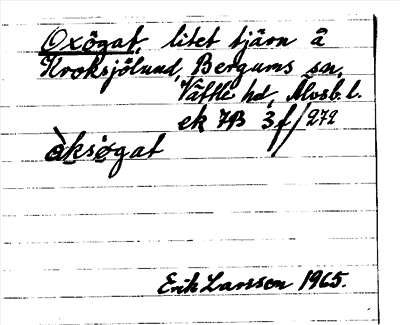 Oxögat, litet tjärn å
Kroksjölund, Bergums sn,
Vättle hd, Älvsb. l.
ek 7B 3f/272
òksögat
Erik Larsson 1965.